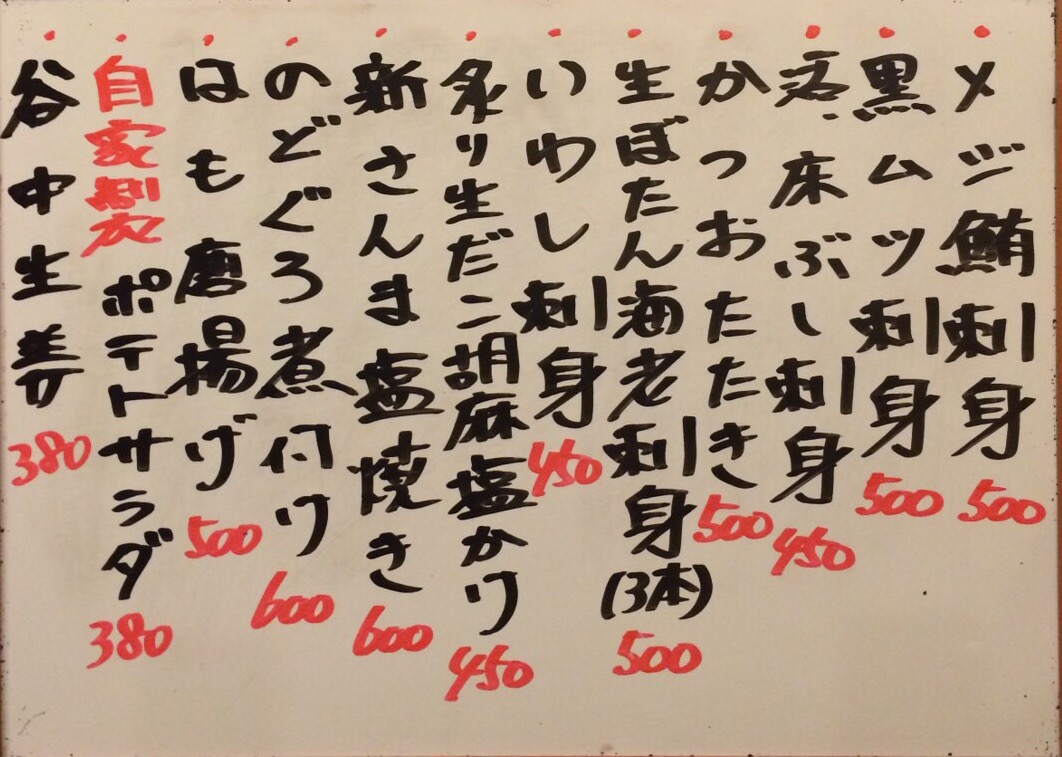 メジ鮪刺身 500
黒ムツ刺身 500
活床ぶし刺身 450
かつおたたき 500
生ぼたん海老刺身(3本) 500
いわし刺身 450
炙り生だこ胡麻塩かけ 450
新さんま塩焼き 600
のどぐろ煮付け 600
はも唐揚げ 500
自家製ポテトサラダ 380
谷中生姜 380